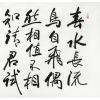 春水長流
鳥自飛偶
然相值不相
知請君試